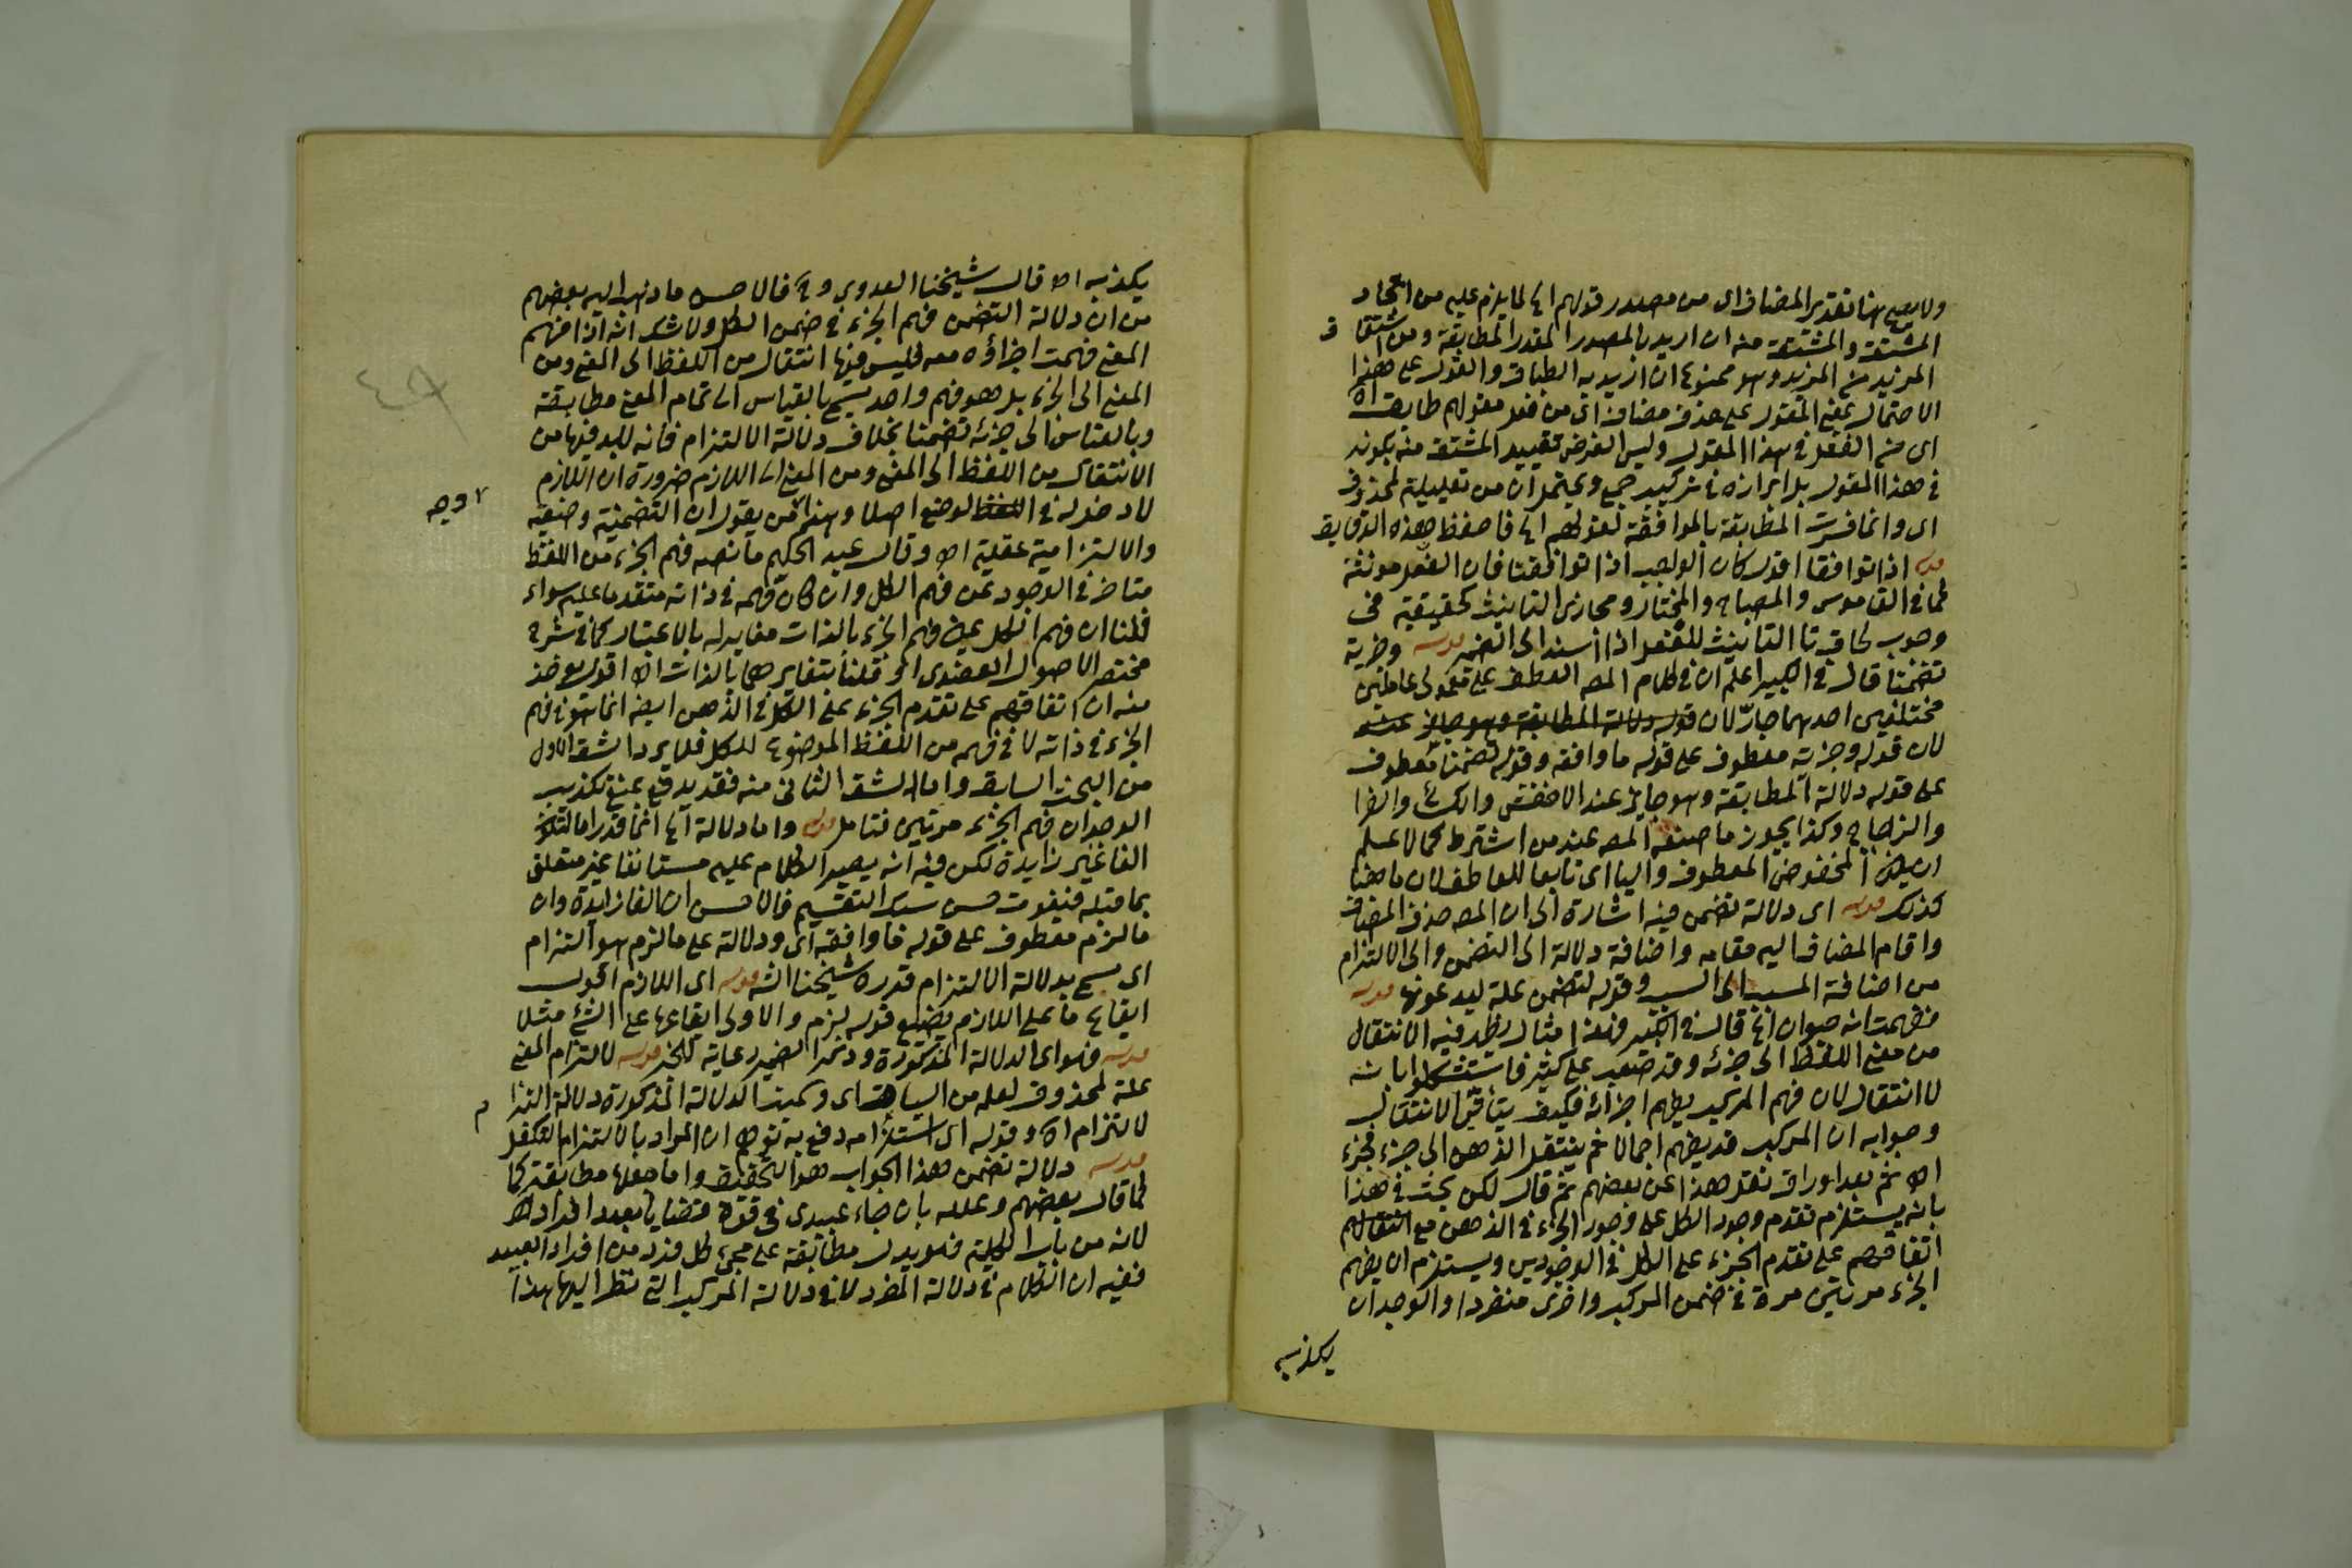 ولا يصح هنا تقدير المضاف اى من مصدر قولهم الخ لما يلزم عليه من اتحاد
المشتق والمشتق منه ان اريد بالمصدر المقدر المطابقة ومن اشتقاق
المزيد من المزيد وهو ممنوع ان اريد به الطباق والقول على هذا
الاحتمال بمعنى المقول على حذف مضاف اى من فعل مقولهم طابق اه
اى من الفعل فى هذا المقول وليس الغرض تقييد المشتق منه بكونه
فى هذا المقول بل ابرازه فى تركيب صح ويحتمل ان من تعليلية لمحذوف
اى وانما فسرت المطابقة بالموافقة لقولهم الخ فاحفظ هذه الدقايق
قوله اذا توافقا اقول كان الواجب اذا توافقتا فان النعل مونثة
كما فى القاموس والمصباح والمختار ومجازى التانيث كحقيقيه فى
وجوب لحاق تا التانيث للفعل اذا اسند الى الضمير قوله وجزئه
تضمنا قال فى الكبير اعلم ان فى كلام المص العطف على معمولى عاملين
مختلفين احدهما جار لان قوله دلالة المطابقة وهو جايز عند
لان قوله وجزئه معطوف على قوله ما وافقه وقوله تضمنا معطوف
على قوله دلالة المطابقة وهو جايز عند الاخفش والكسائى والفرا
والزجاج وكذا يجوز ما صنعه المص عند من اشترط كالاعلم
ان يكون المخفوض المعطوف واليا اى تابعا للعاطف لان ما هنا
كذلك قوله اى دلالة تضمن فيه اشارة الى ان المص حذف المضاف
واقام المضاف اليه مقامه واضافة دلالة الى التضمن والى الالتزام
من اضافة المسبب الى السبب وقوله لتضمن علة ليدعونها قوله
ففهمت انه حيوان الخ قال فى الكبير فهذا مثال يظهر فيه الانتقال
من معنى اللفظ الى جزئه وقد صعب على كثير فاستشكلوا بانه
لا انتقال لان فهم المركب بفهم اجزائه فكيف يتأتى الانتقال
وجوابه ان المركب قد يفهم اجمالا ثم ينتقل الذهن الى جزء فجزء
اه ثم بعد اوراق نقل هذا عن بعضهم ثم قال لكن بحث فى هذا
بانه يستلزم تقدم وجود الكل على وجود الجزء فى الذهن مع
اتفاقهم على تقدم الجزء على الكل فى الوجودين ويستلزم ان يفهم
الجزء مرتين مرة فى ضمن المركب واخرى منفردا والوجدان
يكذبه
يكذبه اه قال شيخنا العدوى وح فالاحسن ما ذهب اليه بعضهم
من ان دلالة التضمن فهم الجزء فى ضمن الكل ولا شك انه اذا فهم
المعنى فهمت اجزاؤه معه فليس فيها انتقال من اللفظ الى المعنى ومن
المعنى الى الجزء بل هو فهم واحد يسمى بالقياس الى تمام المعنى مطابقة
وبالقياس الى جزئه تضمنا بخلاف دلالة الالتزام فانه لابد فيها من
الانتقال من اللفظ الى المعنى ومن المعنى الى اللازم ضرورة ان اللازم
لا دخول له فى اللفظ لوضع اصلا وهذا من يقول ان التضمنية وضعية
وجه
والالتزامية عقلية اه وقال عبد الحكيم ما نصه فهم الجزء من اللفظ
متاخر فى الوجود عن فهم الكل وان كان فهمه فى ذاته متقدما عليه سواء
قلنا ان فهم الكل عين فهم الجزء بالذات مغاير له بالاعتبار كما فى شرح
مختصر الاصول العضدى او قلنا بتغايرهما بالذات اه اقول يوخذ
منه ان اتفاقهم على تقدم الجزء على الكل فى الذهن ايضا انما هو فى فهم
الجزء فى ذاته لا فى فهمه من اللفظ الموضوع للكل فلا يرد الشق الاول
من البحث السابق واما الشق الثانى منه فقد يدفع بمنع تكذيب
الوجدان فهم الجزء مرتين فتامل قوله واما دلالة الخ انما قدر اما لتكون
الفا غير زايدة لكن فيه انه يصير الكلام عليه مستانفا غير متعلق
بما قبله فيفوت حسن سبك التقسيم فالاحسن ان الفا زايدة وان
ما لزم معطوف على قوله ما وافقه اى ودلالة على ما لزم هو التزام
اى يسمى بدلالة الالتزام قدره شيخنا الش قوله اى اللازم اقول
ايقاع ما على اللازم يضيع قوله لزم والاولى ايقاعها على الشئ مثلا
قوله فهو اى الدلالة المذكورة وذكر الضمير رعاية للخبر قوله لالتزام المعنى
علة لمحذوف لعله من السياق اى وسميت الدلالة المذكورة دلالة التزام
لالتزام اه وقوله اى استلزامه دفع به توهم ان المراد بالالتزام التكفل
قوله دلالة تضمن هذا الجواب هو التحقيق واما جعلها مطابقة كما
كما قال بعضهم وعلله بان جاء عبيدى فى قوة قضايا بعدد افراد اه
لانه من باب الكلية فهو يدل مطابقة على مجئ كل فرد من افراد العبيد
ففيه ان الكلام فى دلالة المفرد لا فى دلالة المركب التى نظر اليها هذا